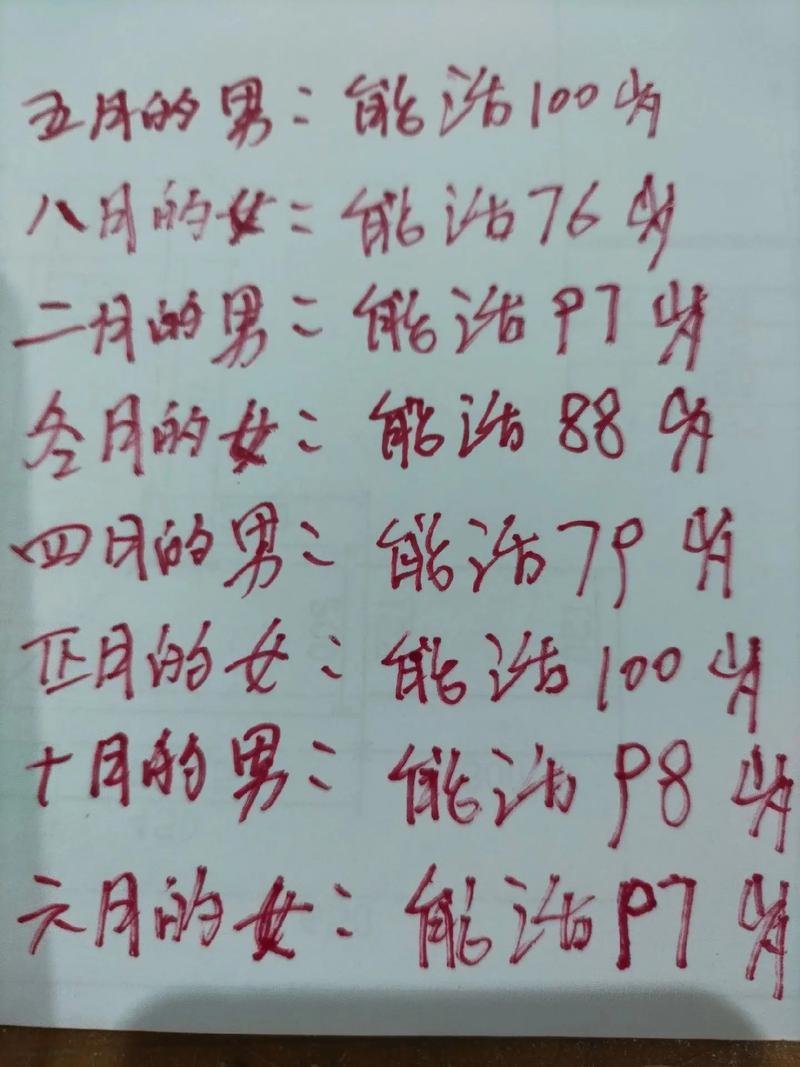 五月的男：能活100岁
八月的女：能活76岁
二月的男：能活97岁
冬月的女：能活88岁
四月的男：能活79岁
正月的女：能活100岁
十月的男：能活98岁
六月的女：能活97岁